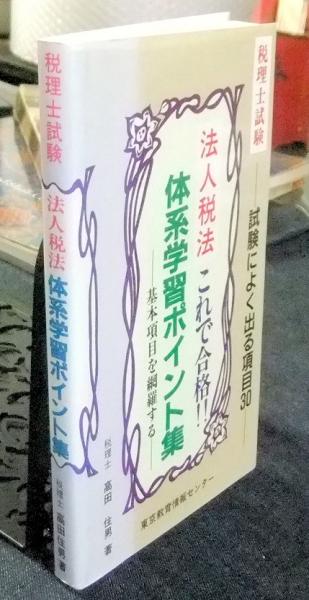 税理士試験
試験によく出る項目30
法人税法 これで合格!!
体系学習ポイント集
──基本項目を網羅する──
税理士 高田 住男 著
東京教育情報センター
税理士試験
法人税法 体系学習ポイント集
税理士 高田住男 著